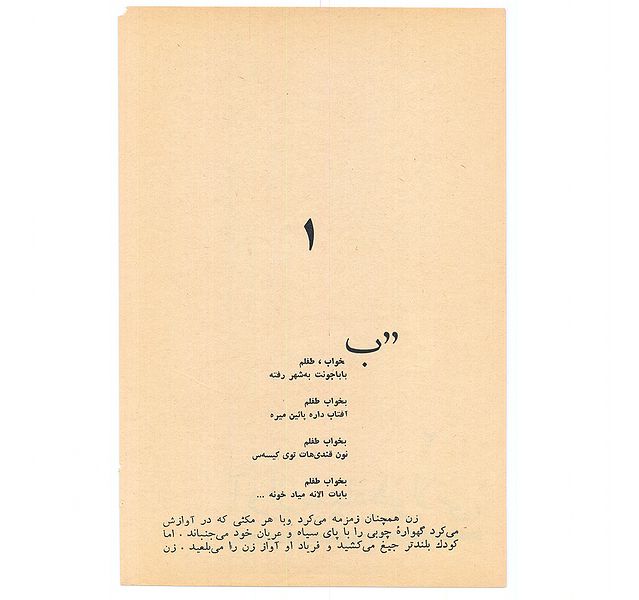 ۱
”بخواب ، طفلم
باباجونت به‌شهر رفته
بخواب طفلم
آفتاب داره پائین میره
بخواب طفلم
نون قندی‌هات توی کیسه‌س
بخواب طفلم
بابات الانه میاد خونه ...
زن همچنان زمزمه می‌کرد وبا هر مکثی که در آوازش
می‌کرد گهوارهٔ چوبی را با پای سیاه و عریان خود می‌جنباند . اما
کودك بلندتر جیغ می‌کشید و فریاد او آواز زن را می‌بلعید . زن